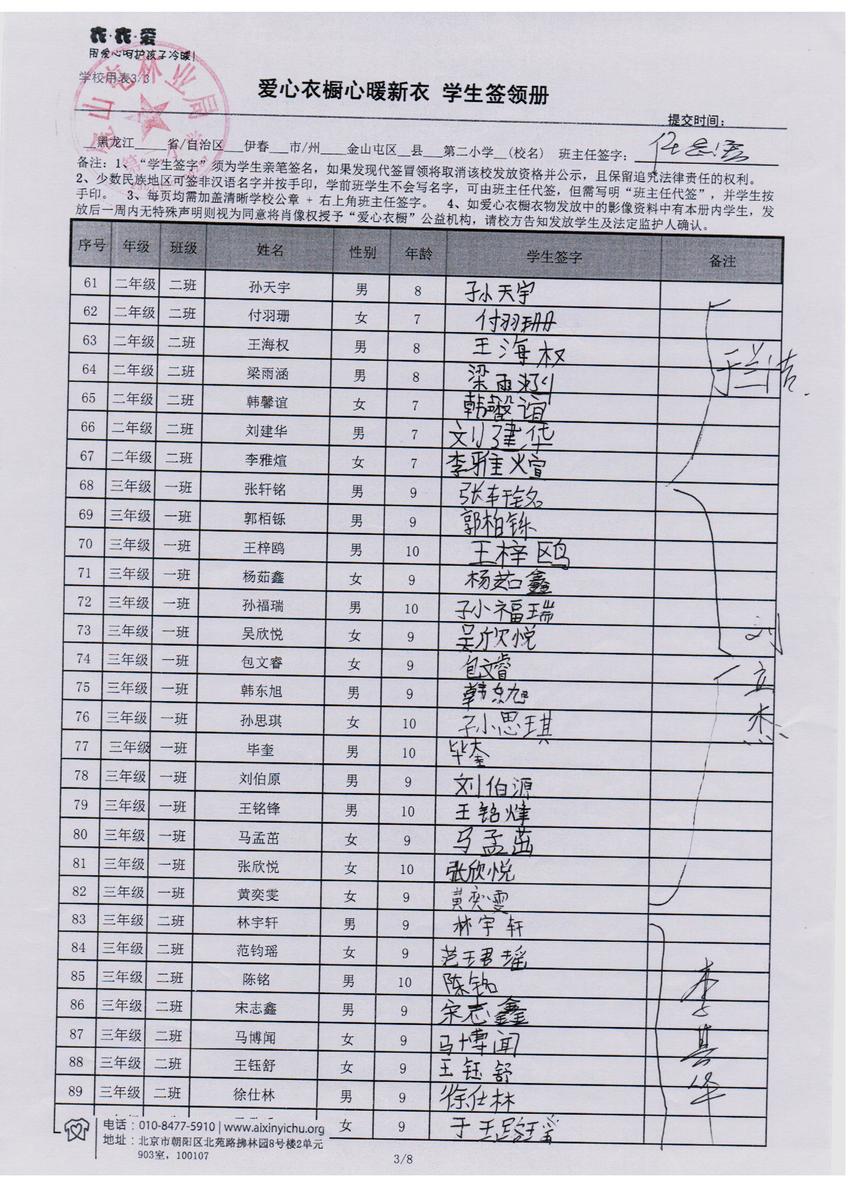 衣·衣·爱
用爱心呵护孩子冷暖!
学校用表3/3
山屯林业局
爱心衣橱心暖新衣 学生签领册
提交时间:
黑龙江 省/自治区 伊春 市/州 金山屯区 县 第二小学 (校名) 班主任签字:
备注: 1、 “学生签字”须为学生亲笔签名,如果发现代签冒领将取消该校发放资格并公示,且保留追究法律责任的权利。
2、少数民族地区可签非汉语名字并按手印,学前班学生不会写名字,可由班主任代签,但需写明“班主任代签”,并学生按
手印。 3、每页均需加盖清晰学校公章 + 右上角班主任签字。 4、如爱心衣橱衣物发放中的影像资料中有本册内学生,发
放后一周内无特殊声明则视为同意将肖像权授予“爱心衣橱”公益机构,请校方告知发放学生及法定监护人确认。
序号 年级 班级 姓名 性别 年龄 学生签字 备注
61 二年级 二班 孙天宇 男 8 孙天宇
62 二年级 二班 付羽珊 女 7 付羽珊
63 二年级 二班 王海权 男 8 王海权
64 二年级 二班 梁雨涵 男 8 梁雨
65 二年级 二班 韩馨谊 女 7 韩馨谊
66 二年级 二班 刘建华 男 7 刘建华
67 二年级 二班 李雅煊 女 7 李雅煊
68 三年级 一班 张轩铭 男 9 张轩铭
69 三年级 一班 郭栢铄 男 9 郭柏铄
70 三年级 一班 王梓鸥 男 10 王梓鸥
71 三年级 一班 杨茹鑫 女 9 杨茹鑫
72 三年级 一班 孙福瑞 男 10 孙福瑞
73 三年级 一班 吴欣悦 女 9 吴欣悦
74 三年级 一班 包文睿 女 9 包文睿
75 三年级 一班 韩东旭 男 9 韩东旭
76 三年级 一班 孙思琪 女 10 孙思琪
77 三年级 一班 毕奎 男 10 毕奎
78 三年级 一班 刘伯原 男 9 刘伯源
79 三年级 一班 王铭锋 男 10 王铭烽
80 三年级 一班 马孟茁 女 9 马孟茁
81 三年级 一班 张欣悦 女 10 张欣悦
82 三年级 一班 黄奕雯 女 9 黄奕雯
83 三年级 二班 林宇轩 男 9 林宇轩
84 三年级 二班 范钧瑶 女 9 范珺瑶
85 三年级 二班 陈铭 男 10 陈铭
86 三年级 二班 宋志鑫 男 9 宋志鑫
87 三年级 二班 马博闻 女 9 马博闻
88 三年级 二班 王钰舒 女 9 王钰舒
89 三年级 二班 徐仕林 男 9 徐仕林
女 9 于
于兰洁
刘立杰
李其华
电话:010-8477-5910 | www.aixinyichu.org
地址:北京市朝阳区北苑路拂林园8号楼2单元
903室,100107
3/8